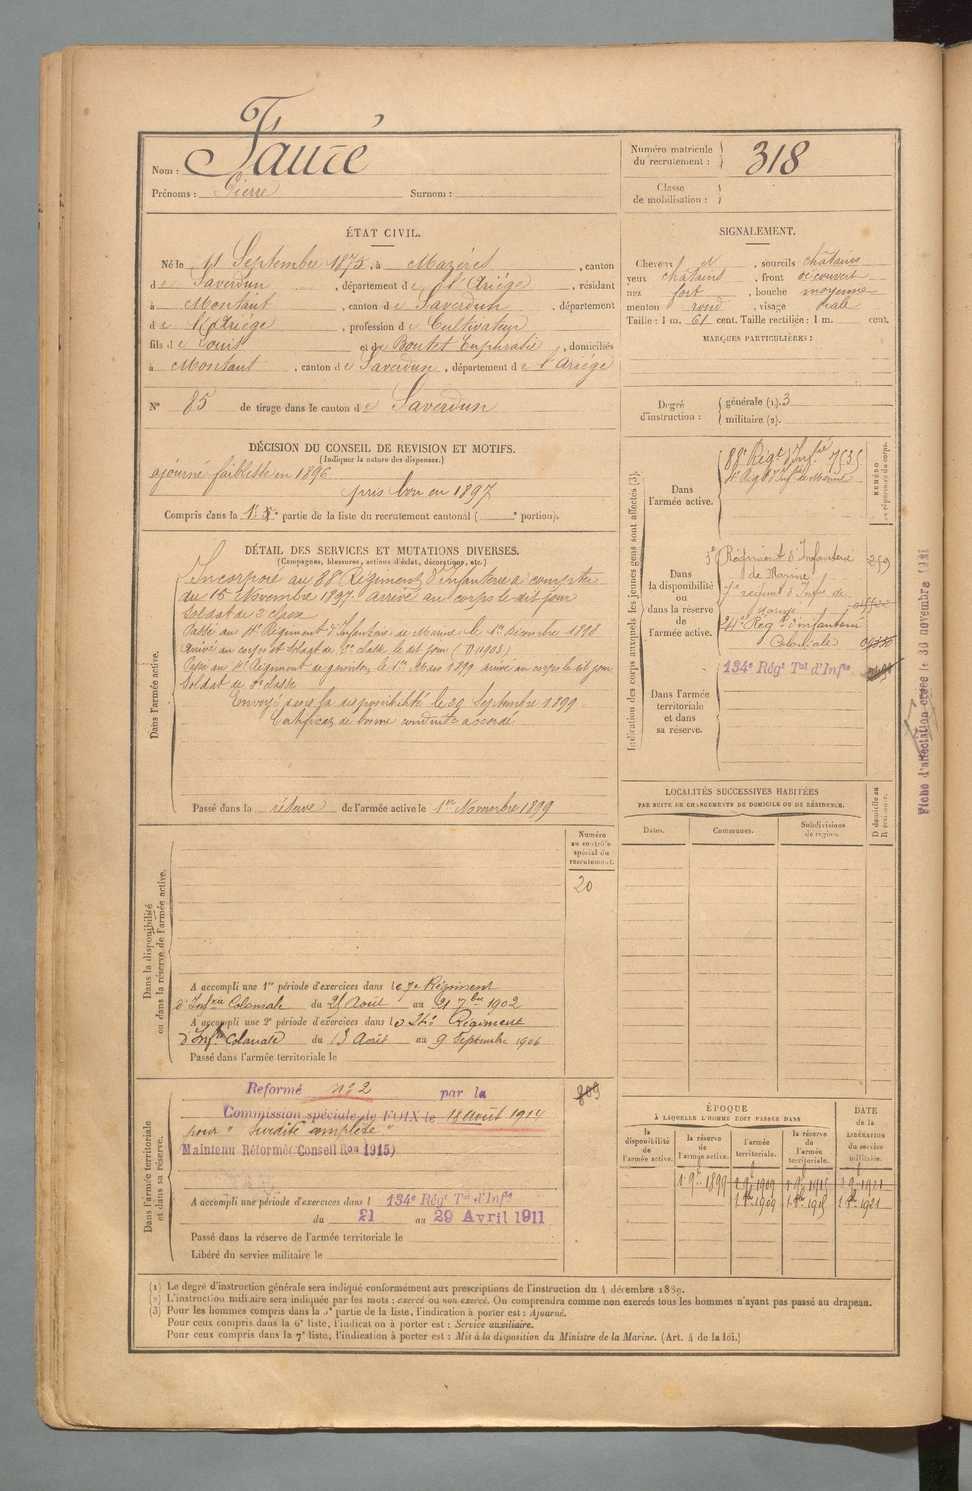 Nom : Fauré
Prénoms : Pierre Surnom :
Numéro matricule du recrutement : 318
Classe de mobilisation :
ÉTAT CIVIL.
Né le 11 Septembre 1875, à Mazères, canton
de Saverdun, département de l'Ariège, résidant
à Montaut, canton de Saverdun, département
de l'Ariège, profession de Cultivateur
fils de Louis et de Boutet Euphrasie, domiciliés
à Montaut, canton de Saverdun, département de l'Ariège
N° 85 de tirage dans le canton de Saverdun
SIGNALEMENT.
Cheveux et, sourcils châtains
yeux châtains, front découvert
nez fort, bouche moyenne
menton rond, visage ovale
Taille : 1 m. 61 cent. Taille rectifiée : 1 m. cent.
MARQUES PARTICULIÈRES :
Degré d'instruction : générale (1). 3
militaire (2).
DÉCISION DU CONSEIL DE REVISION ET MOTIFS.
(Indiquer la nature des dispenses.)
ajourné faiblesse en 1896
pris bon en 1897
Compris dans la 1e partie de la liste du recrutement cantonal ( e portion).
DÉTAIL DES SERVICES ET MUTATIONS DIVERSES.
(Campagnes, blessures, actions d'éclat, décorations, etc.)
Dans l'armée active.
Incorporé au 88e Régiment d'Infanterie à compter
du 15 Novembre 1897 arrivé au corps le dit jour
Soldat de 2e classe
Passé au 4e Régiment d'Infanterie de Marine le 1er Décembre 1898
Arrivé au corps et soldat de 2e classe le dit jour (D 11903)
Passé au Régiment de garnison le 1er Mars 1899 arrivé au corps le dit jour
Soldat de 2e classe
Envoyé dans la disponibilité le 20 Septembre 1899
Certificat de bonne conduite accordé
Passé dans la réserve de l'armée active le 1er Novembre 1899
Indication des corps auxquels les jeunes gens sont affectés (3).
NUMÉRO au répertoire du corps.
Dans l'armée active.
88e Régt d'Infie 7535
4e Régt d'Infie de Marine
Dans la disponibilité ou dans la réserve de l'armée active.
Régiment d'Infanterie 259
de Marine
régiment d'Infie de
24e Régt d'infanterie
Coloniale
134e Régt Tal d'Infie
Dans l'armée territoriale et dans sa réserve.
Fiche d'affectation créée le 30 novembre
LOCALITÉS SUCCESSIVES HABITÉES
PAR SUITE DE CHANGEMENTS DE DOMICILE OU DE RÉSIDENCE.
Dates. Communes. Subdivisions de région. D domicile ou R résidence.
Numéro au contrôle spécial du recrutement.
20
Dans la disponibilité ou dans la réserve de l'armée active.
A accompli une 1re période d'exercices dans le 7e Régiment
d'Infrie Coloniale du 25 Août au 21 7bre 1902
A accompli une 2e période d'exercices dans le 24e Régiment
d'Infie Coloniale du 13 Août au 9 Septembre 1906
Passé dans l'armée territoriale le
Dans l'armée territoriale et dans sa réserve.
Reformé n° 2 par la
809
Commission spéciale de FOIX le 18 Août 1914
pour " Surdité complète "
Maintenu Réformé (Conseil Ron 1915)
A accompli une période d'exercices dans l 134e Régt Tal d'Infie
du 21 au 29 Avril 1911
Passé dans la réserve de l'armée territoriale le
Libéré du service militaire le
ÉPOQUE
À LAQUELLE L'HOMME DOIT PASSER DANS
DATE de la LIBÉRATION du service militaire.
la disponibilité de l'armée active. la réserve de l'armée active. l'armée territoriale. la réserve de l'armée territoriale.
1 9bre 1899 1 9bre 1909 1 9bre 1915 1 9bre 1921
1 8bre 1909 1 8bre 1915 1 8bre 1921
(1) Le degré d'instruction générale sera indiqué conformément aux prescriptions de l'instruction du 4 décembre 1889.
(2) L'instruction militaire sera indiquée par les mots : exercé ou non exercé. On comprendra comme non exercés tous les hommes n'ayant pas passé au drapeau.
(3) Pour les hommes compris dans la 5e partie de la liste, l'indication à porter est : Ajourné.
Pour ceux compris dans la 6e liste, l'indication à porter est : Service auxiliaire.
Pour ceux compris dans la 7e liste, l'indication à porter est : Mis à la disposition du Ministre de la Marine. (Art. 4 de la loi.)